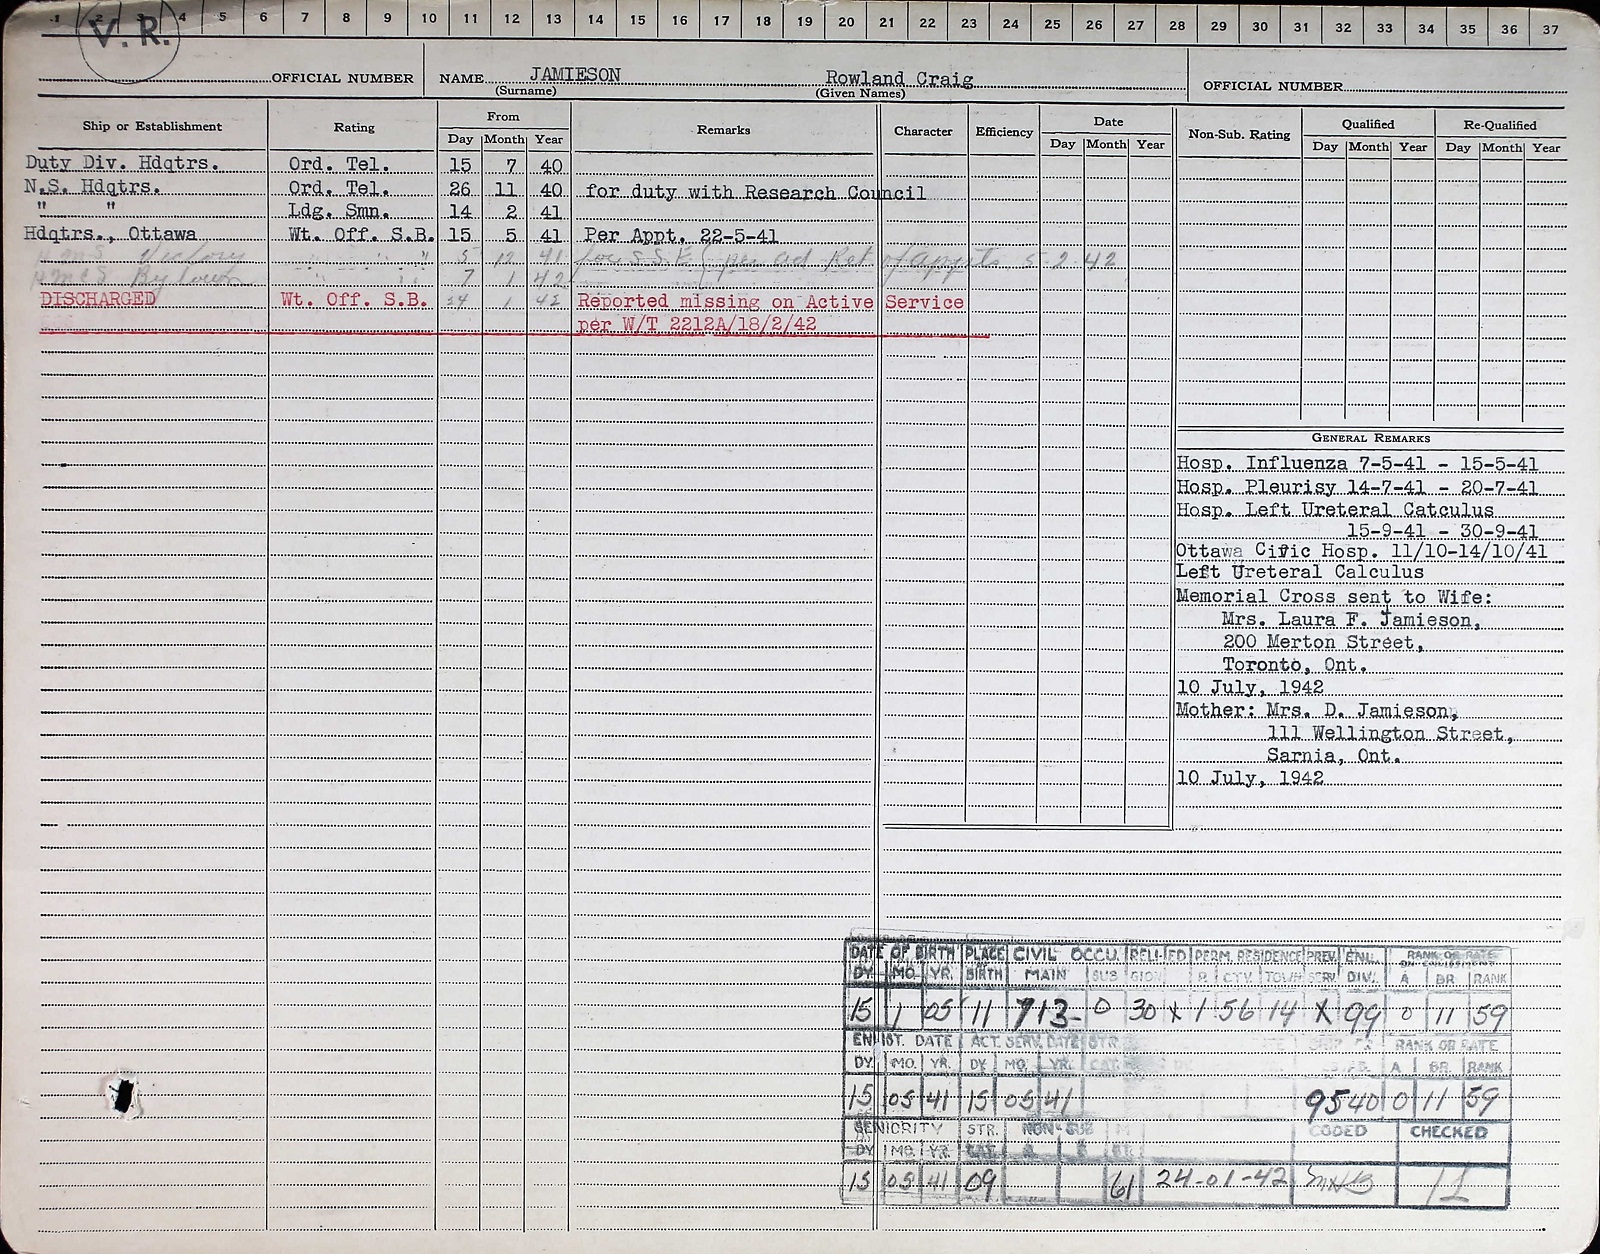 1 2 3 4 5 6 7 8 9 10 11 12 13 14 15 16 17 18 19 20 21 22 23 24 25 26 27 28 29 30 31 32 33 34 35 36 37
V. R.
OFFICIAL NUMBER NAME JAMIESON Rowland Craig OFFICIAL NUMBER
(Surname) (Given Names)
Ship or Establishment Rating From Remarks Character Efficiency Date Non-Sub. Rating Qualified Re-Qualified
Day Month Year Day Month Year Day Month Year Day Month Year
Duty Div. Hdqtrs. Ord. Tel. 15 7 40
N.S. Hdqtrs. Ord. Tel. 26 11 40 for duty with Research Council
" " Ldg. Smn. 14 2 41
Hdqtrs., Ottawa Wt. Off. S.B. 15 5 41 Per Appt. 22-5-41
H.M.S. Victory " " " 5 12 41 for S.S.E. (per ad Ret of appts 5-2-42
H.M.C.S. Bytown " " 7 1 42
DISCHARGED Wt. Off. S.B. 24 1 42 Reported missing on Active Service
per W/T 2212A/18/2/42
GENERAL REMARKS
Hosp. Influenza 7-5-41 - 15-5-41
Hosp. Pleurisy 14-7-41 - 20-7-41
Hosp. Left Ureteral Catculus
15-9-41 - 30-9-41
Ottawa Cific Hosp. 11/10-14/10/41
Left Ureteral Calculus
Memorial Cross sent to Wife:
Mrs. Laura F. Jamieson,
200 Merton Street,
Toronto, Ont.
10 July, 1942
Mother: Mrs. D. Jamieson,
111 Wellington Street,
Sarnia, Ont.
10 July, 1942
DATE OF BIRTH PLACE CIVIL OCCU. RELI-ED PERM. RESIDENCE PREV. ENL. RANK OR RATE
DY. MO. YR. BIRTH MAIN SUB GION P. CTY. TOWN SERV. DIV. A BR. RANK
15 1 05 11 713- 0 30 X 1 56 14 X 99 0 11 59
ENLIST. DATE ACT. SERV. DATE STR RANK OR RATE
DY. MO. YR. DY. MO. YR. CAT. A BR. RANK
15 05 41 15 05 41 9540 0 11 59
SENIORITY STR. NON-SUB CODED CHECKED
DY. MO. YR. CAT.
15 05 41 09 61 24-01-42